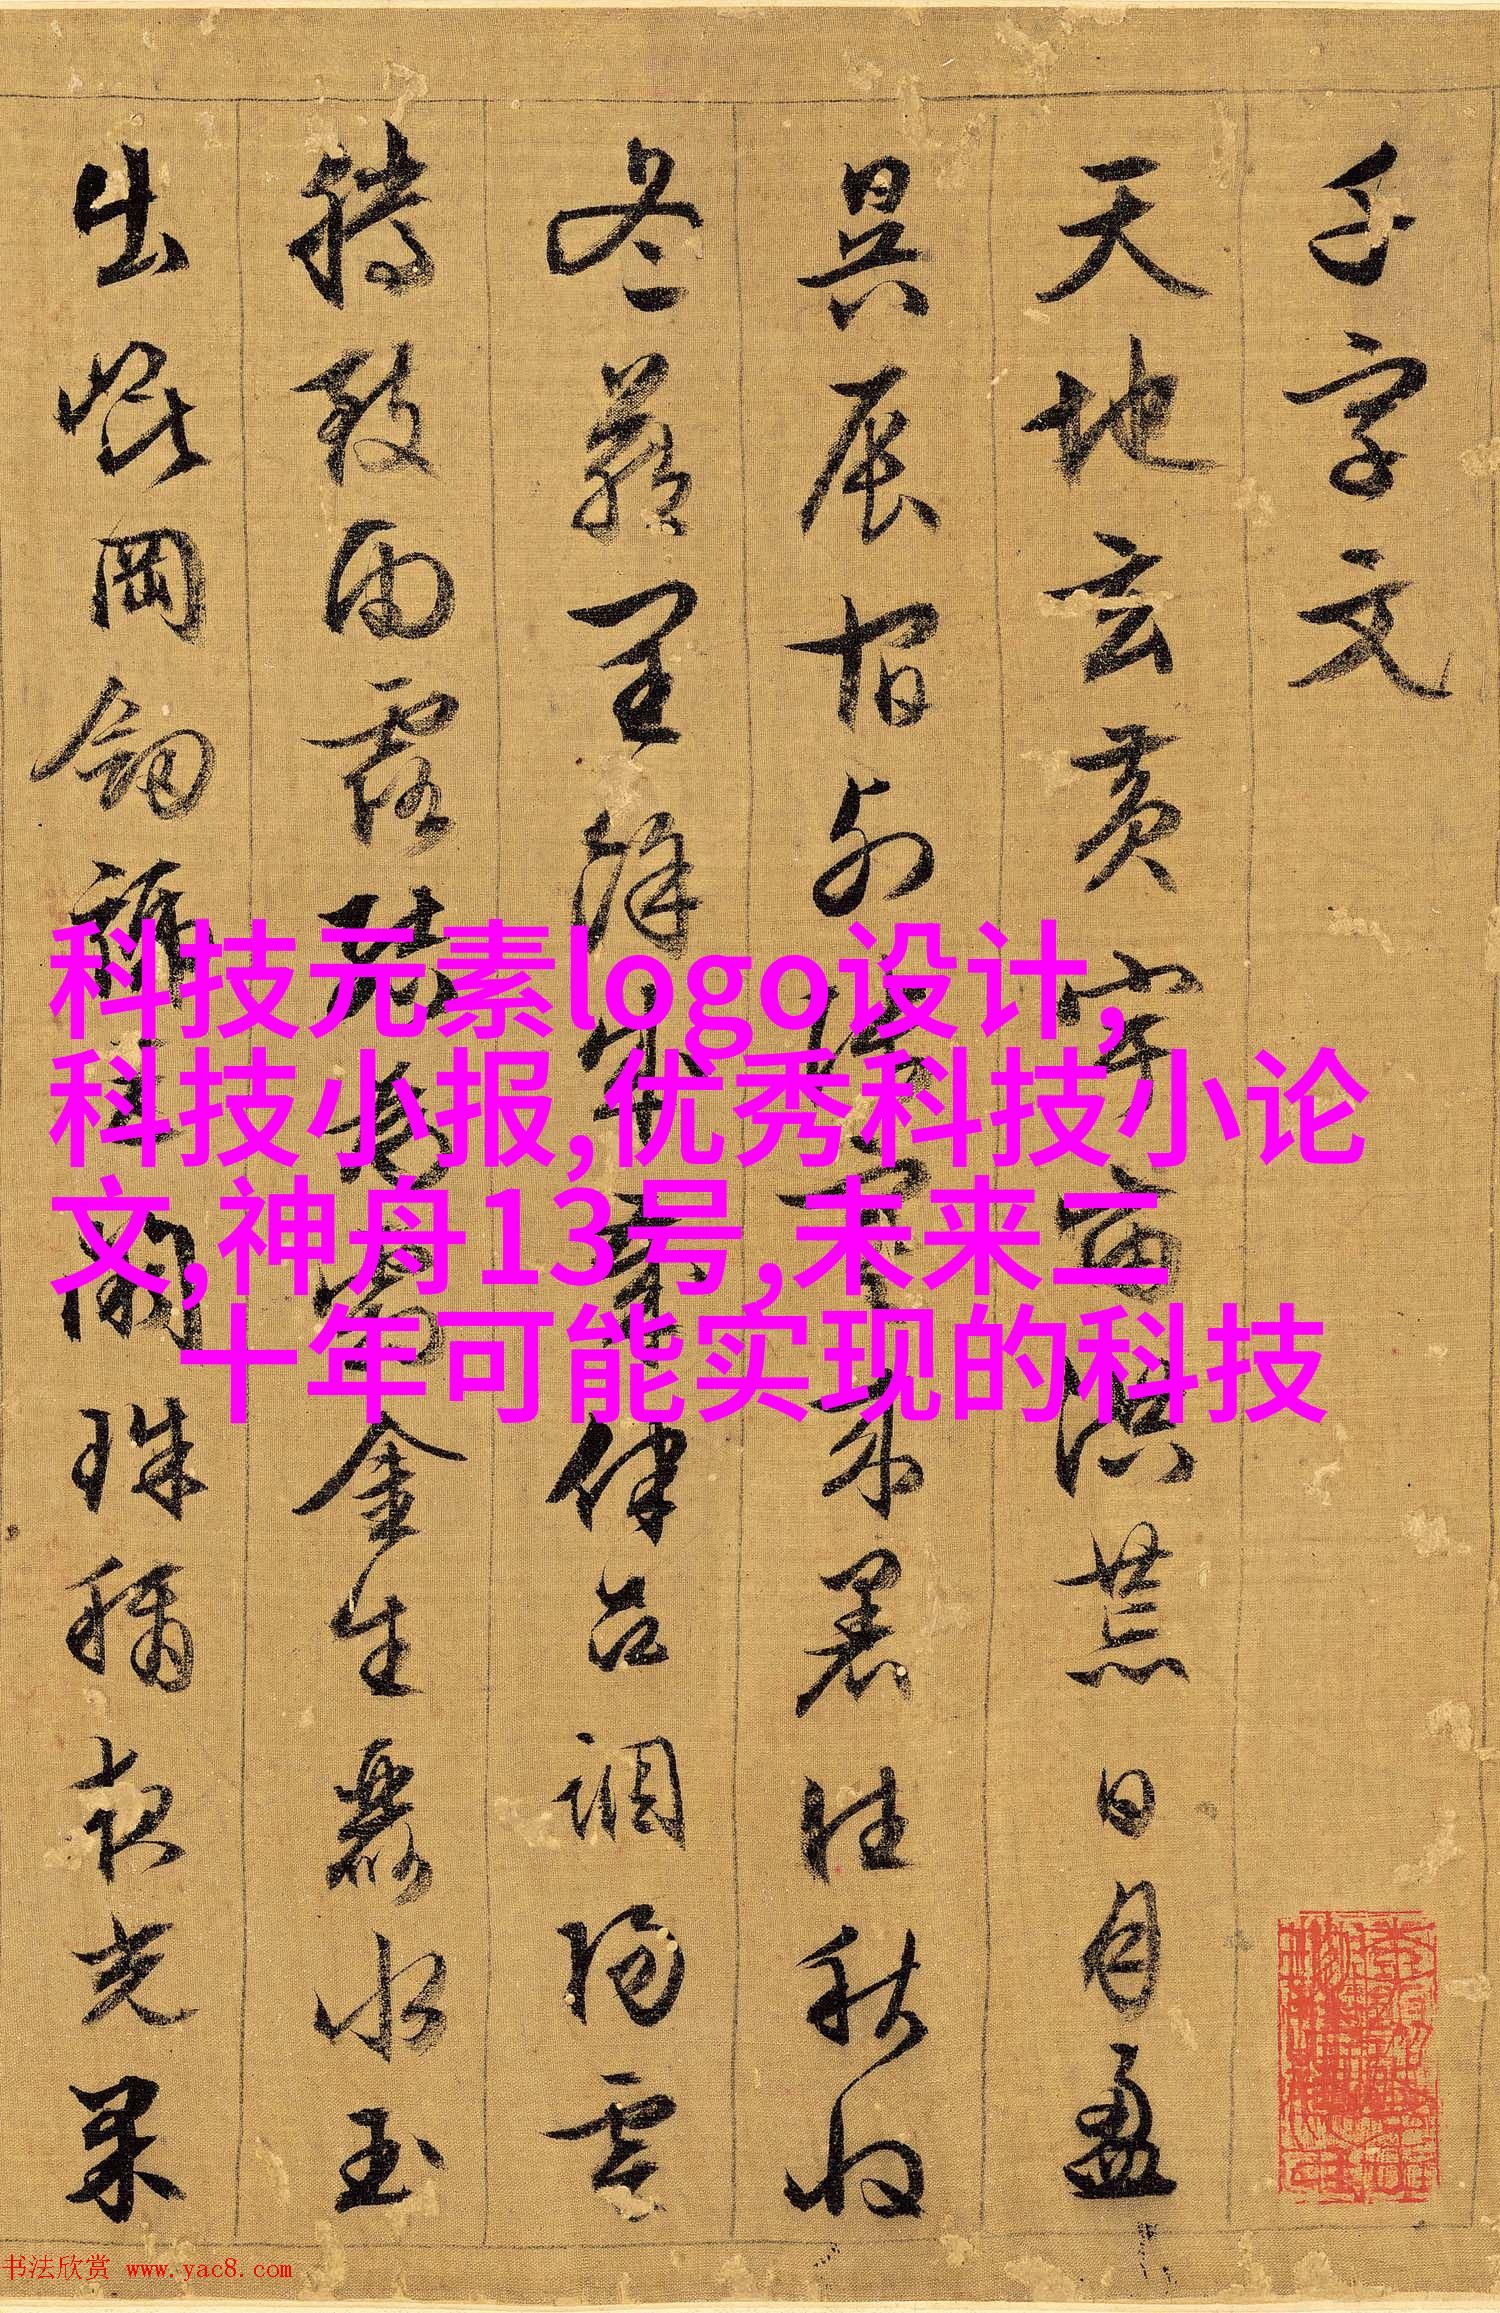 千字文
天地玄黄宇宙洪荒日月盈
昃辰宿列張寒来暑往秋收
冬藏閏餘成歲律吕調陽雲
騰致雨露結為霜金生麗水玉
出崑岡劍號巨闕珠稱夜光果
科技元素logo设计,
科技小报,优秀科技小论
文,神舟13号,未来二
十年可能实现的科技
书法欣赏 www.yac8.com